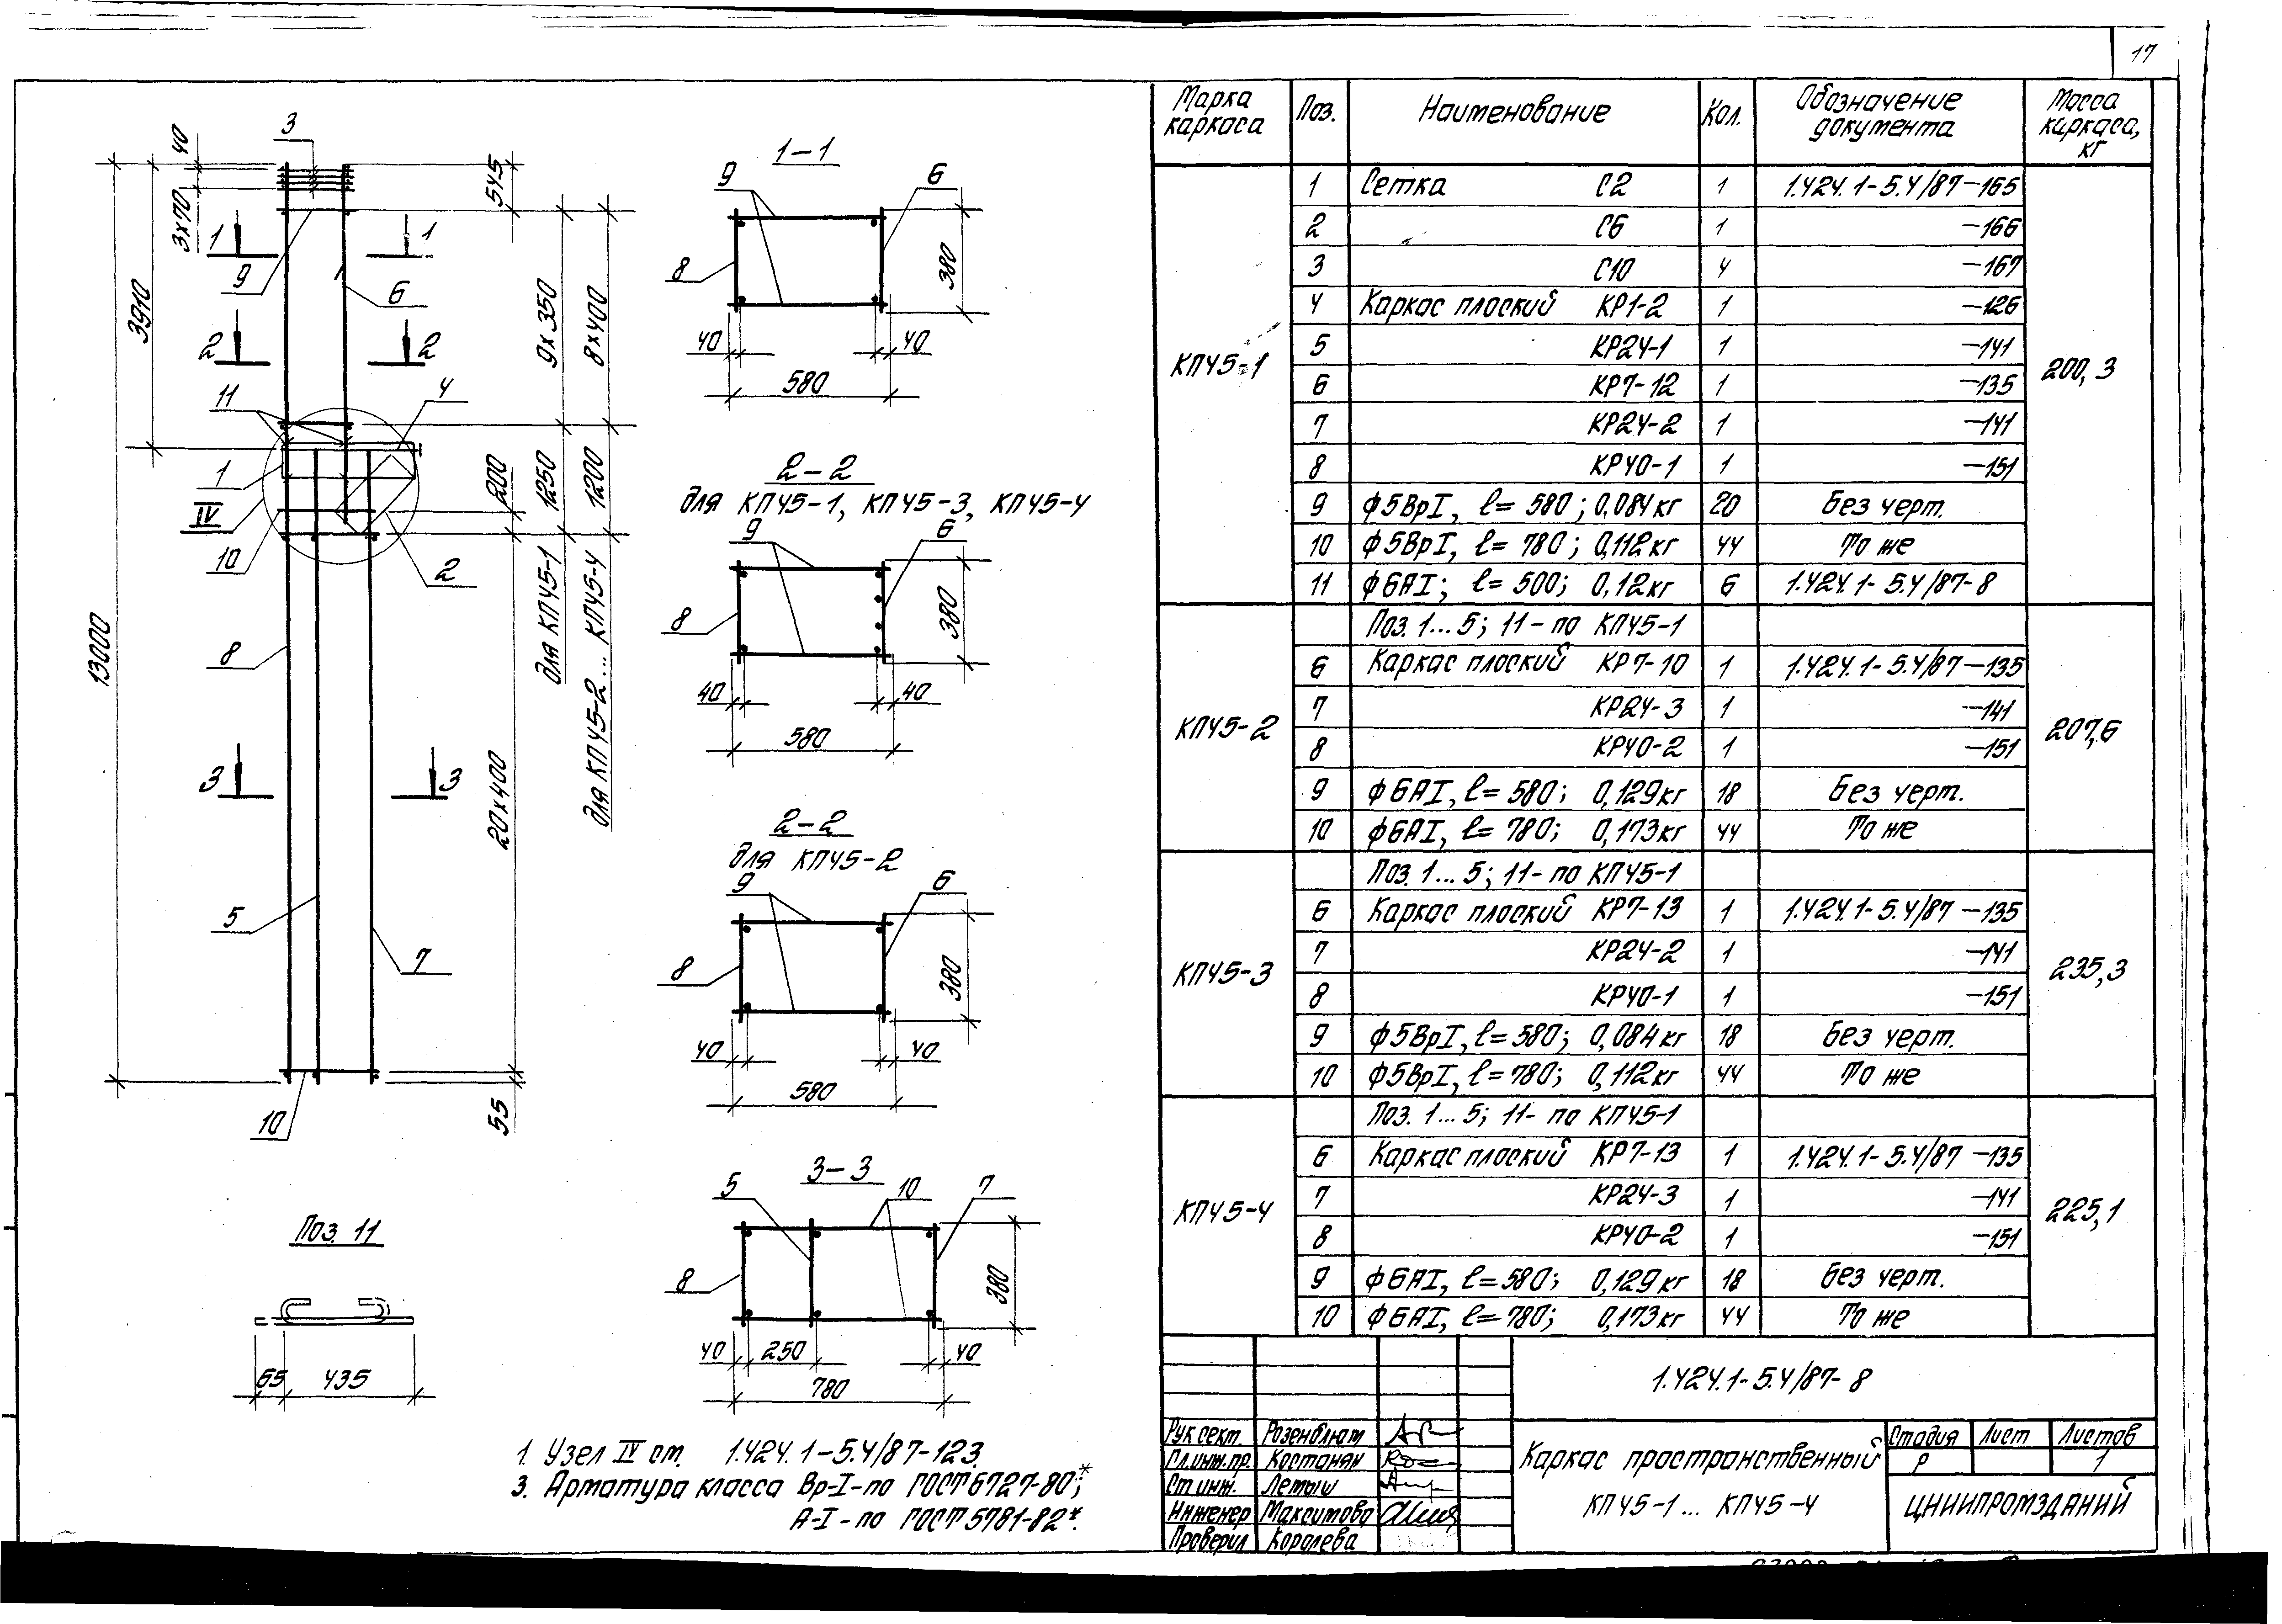 17
40
3
3х70
545
1
1
9
6
3910
2
2
9х350
8х400
11
4
1
IV
10
2
200
1250
1200
для КП45-1
для КП45-2... КП45-4
13000
8
3
3
20х400
5
7
10
55
Поз. 11
65
435
1-1
9
6
8
380
40
40
580
2-2
для КП45-1, КП45-3, КП45-4
9
6
8
380
40
40
580
2-2
для КП45-2
9
6
8
380
40
40
580
3-3
5
10
7
8
380
40
250
40
780
1. Узел IV см. 1.424.1-5.4/87-123.
3. Арматура класса Вр-I-по ГОСТ 6727-80*;
А-I-по ГОСТ 5781-82*.
Марка каркаса Поз. Наименование Кол. Обозначение документа Масса каркаса, кг
КП45-1 200,3
1 Сетка С2 1 1.424.1-5.4/87-165
2 С6 1 -166
3 С10 4 -167
4 Каркас плоский КР1-2 1 -126
5 КР24-1 1 -141
6 КР7-12 1 -135
7 КР24-2 1 -141
8 КР40-1 1 -151
9 ф5ВрI, l=580; 0,084кг 20 Без черт.
10 ф5ВрI, l=780; 0,112кг 44 То же
11 ф6АI; l=500; 0,12кг 6 1.424.1-5.4/87-8
КП45-2 207,6
Поз. 1...5; 11-по КП45-1
6 Каркас плоский КР7-10 1 1.424.1-5.4/87-135
7 КР24-3 1 -141
8 КР40-2 1 -151
9 ф6АI, l=580; 0,129кг 18 Без черт.
10 ф6АI, l=780; 0,173кг 44 То же
КП45-3 235,3
Поз. 1...5; 11-по КП45-1
6 Каркас плоский КР7-13 1 1.424.1-5.4/87-135
7 КР24-2 1 -141
8 КР40-1 1 -151
9 ф5ВрI, l=580; 0,084кг 18 Без черт.
10 ф5ВрI, l=780; 0,112кг 44 То же
КП45-4 225,1
Поз. 1...5; 11-по КП45-1
6 Каркас плоский КР7-13 1 1.424.1-5.4/87-135
7 КР24-3 1 -141
8 КР40-2 1 -151
9 ф6АI, l=580; 0,129кг 18 Без черт.
10 ф6АI, l=780; 0,173кг 44 То же
1.424.1-5.4/87-8
Рук.сект. Розенблюм
Гл.инж.пр. Костанян
Ст.инж. Летыш
Инженер Максимова
Проверил Королева
Каркас пространственный
КП45-1... КП45-4
Стадия Лист Листов
Р 1
ЦНИИПРОМЗДАНИЙ